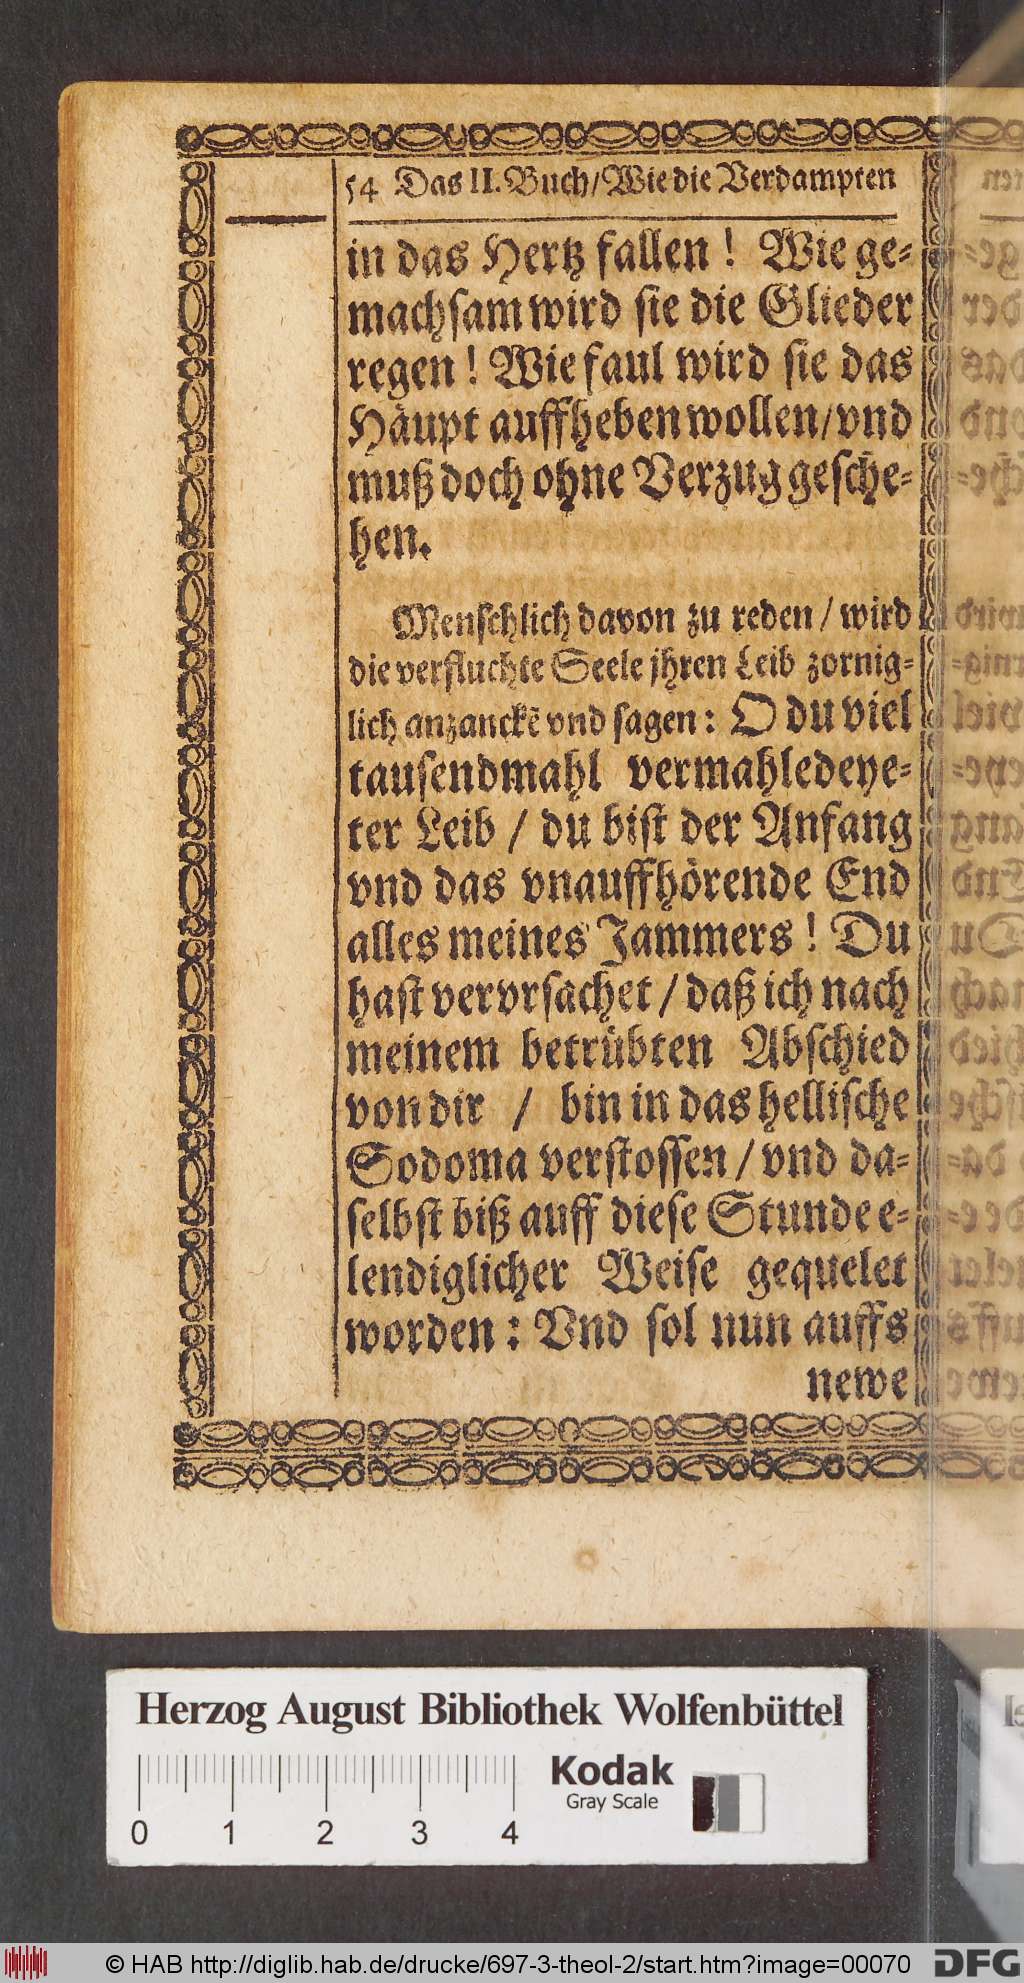 54 Das II. Buch/Wie die Verdampten
in das Hertz fallen! Wie ge-
machsam wird sie die Glieder
regen! Wie faul wird sie das
Häupt auffheben wollen/vnd
muß doch ohne Verzug gesche-
hen.
Menschlich davon zu reden/wird
die verfluchte Seele jhren Leib zornig-
lich anzanckẽ vnd sagen: O du viel
tausendmahl vermahledeye-
ter Leib / du bist der Anfang
vnd das vnauffhörende End
alles meines Jammers! Du
hast vervrsachet / daß ich nach
meinem betrübten Abschied
von dir / bin in das hellische
Sodoma verstossen / vnd da-
selbst biß auff diese Stunde e-
lendiglicher Weise gequelet
worden: Vnd sol nun auffs
newe
Herzog August Bibliothek Wolfenbüttel
Kodak
Gray Scale
0 1 2 3 4
© HAB http://diglib.hab.de/drucke/697-3-theol-2/start.htm?image=00070
DFG